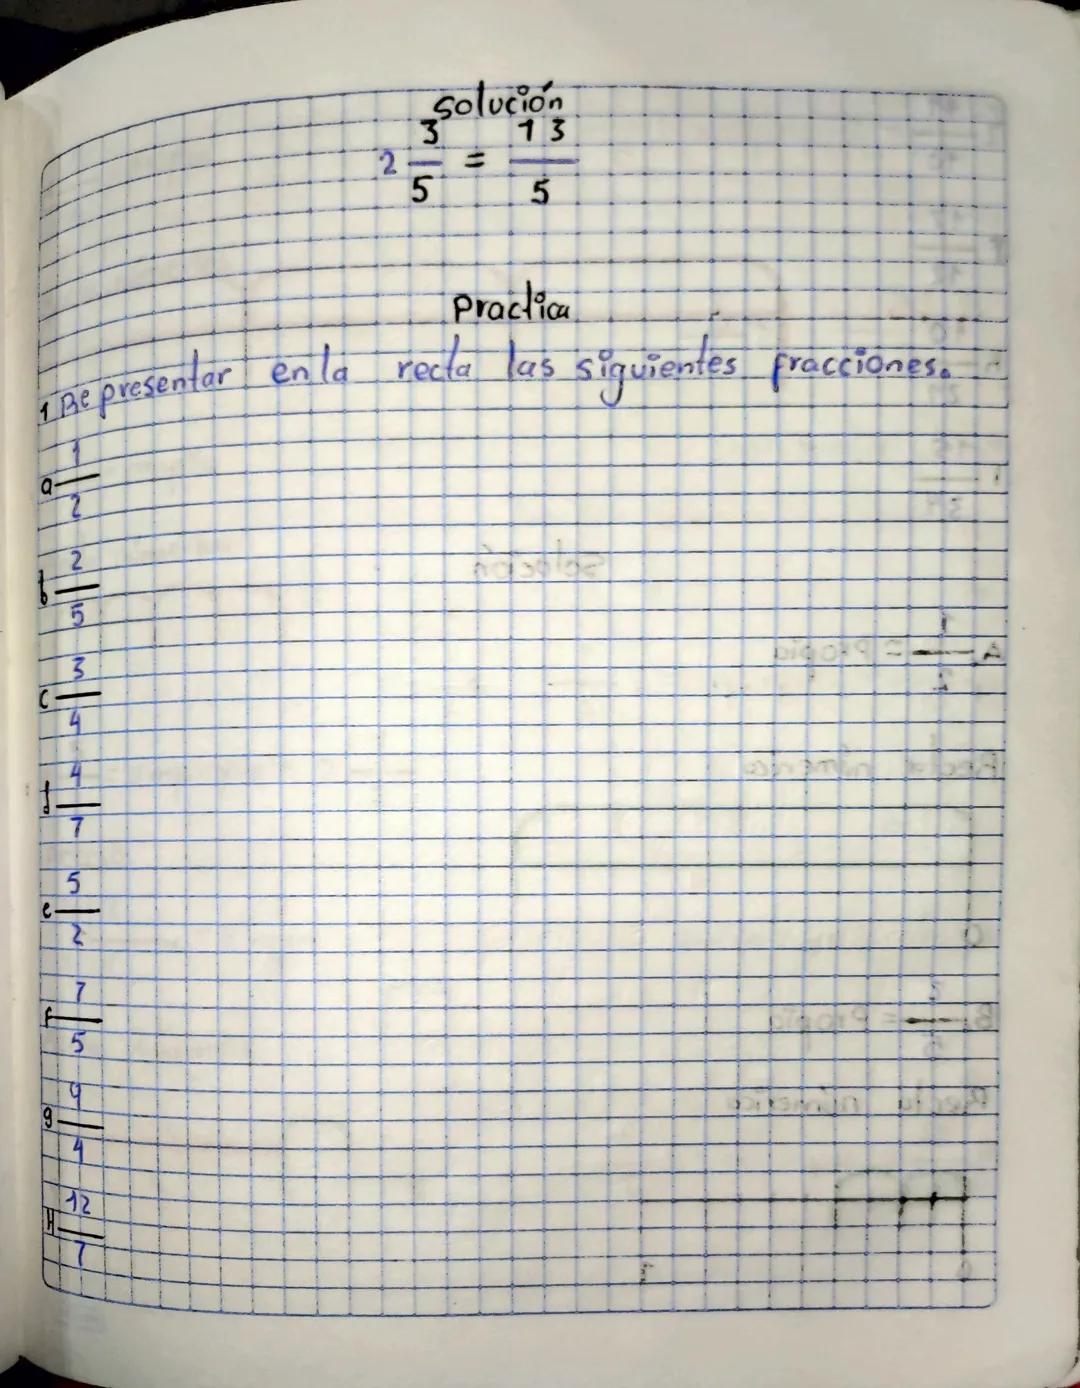 solución
2 3/5 = 13/5
Practica
1 Representar en la recta las siguientes fracciones.
a 1/2
b 2/5
c 3/4
d 4/7
e 5/2
f 7/5
g 9/4
H 12/7